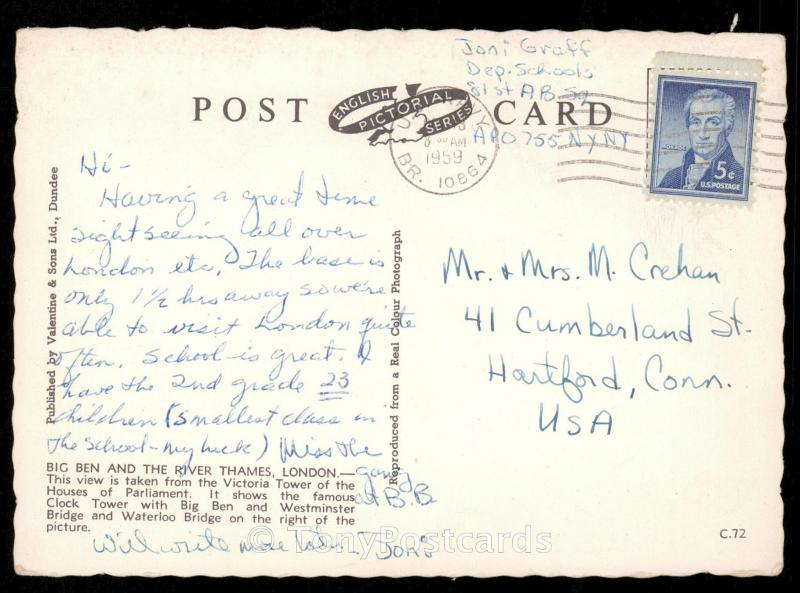 Joni Graff
Dep. Schools
81st A.B. Sq
APO 755 NY NY
POST CARD
ENGLISH
PICTORIAL
SERIES
AM
1959
BR. 10864
MONROE
5¢
U.S. POSTAGE
Hi-
Having a great time
sightseeing all over
London etc. The base is
only 1½ hrs away so we're
able to visit London quite
often. School is great. I
have the 2nd grade 23
children (smallest class in
the school - my luck) Miss the
gang
at B.B.
Will write more later. Joni
Mr. + Mrs. M. Crehan
41 Cumberland St.
Hartford, Conn.
USA
Published by Valentine & Sons Ltd., Dundee
Reproduced from a Real Colour Photograph
BIG BEN AND THE RIVER THAMES, LONDON.—
This view is taken from the Victoria Tower of the
Houses of Parliament. It shows the famous
Clock Tower with Big Ben and Westminster
Bridge and Waterloo Bridge on the right of the
picture.
C.72
© TonyPostcards